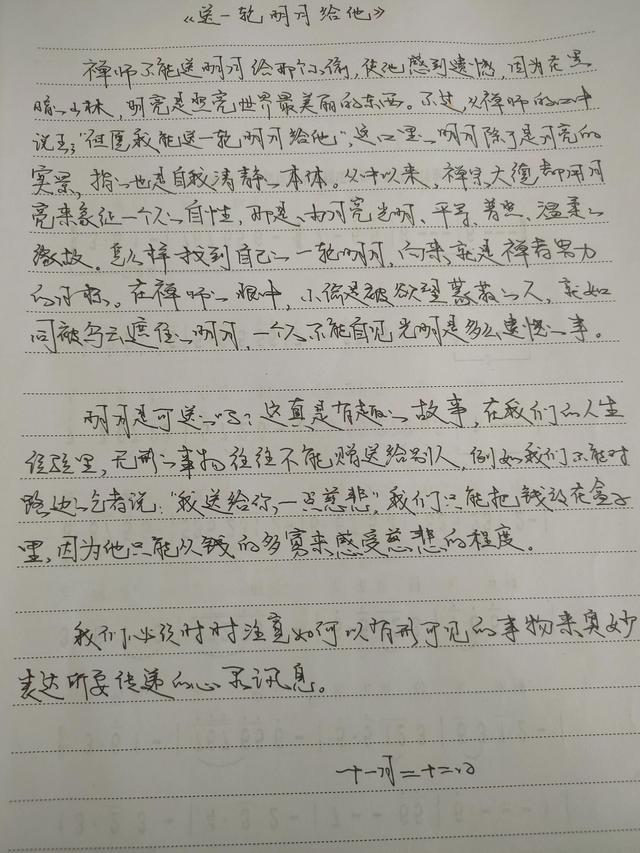 《送一轮明月给他》
禅师不能送明月给那个小偷,使他感到遗憾,因为在黑
暗的山林,明亮是照亮世界最美丽的东西。不过,从禅师的口中
说出:“但愿我能送一轮明月给他”,这口里的明月除了是月亮的
实景,指的也是自我清静的本体。从古以来,禅宗大德都用月
亮来象征一个人的自性,那是由月亮光明、平等、普照、温柔的
缘故。怎么样找到自己的一轮明月,向来就是禅者努力
的目标。在禅师的眼中,小偷是被欲望蒙蔽的人,就如
同被乌云遮住的明月,一个人不能自见光明是多么遗憾的事。
明月是可送的吗?这真是有趣的故事,在我们的人生
经验里,无形的事物往往不能赠送给别人,例如我们不能对
路边的乞者说:“我送给你一点慈悲”,我们只能把钱放在盒子
里,因为他只能从钱的多寡来感受慈悲的程度。
我们必须时时注意如何以有形可见的事物来奥妙
表达所要传递的心灵讯息。
十一月二十二日